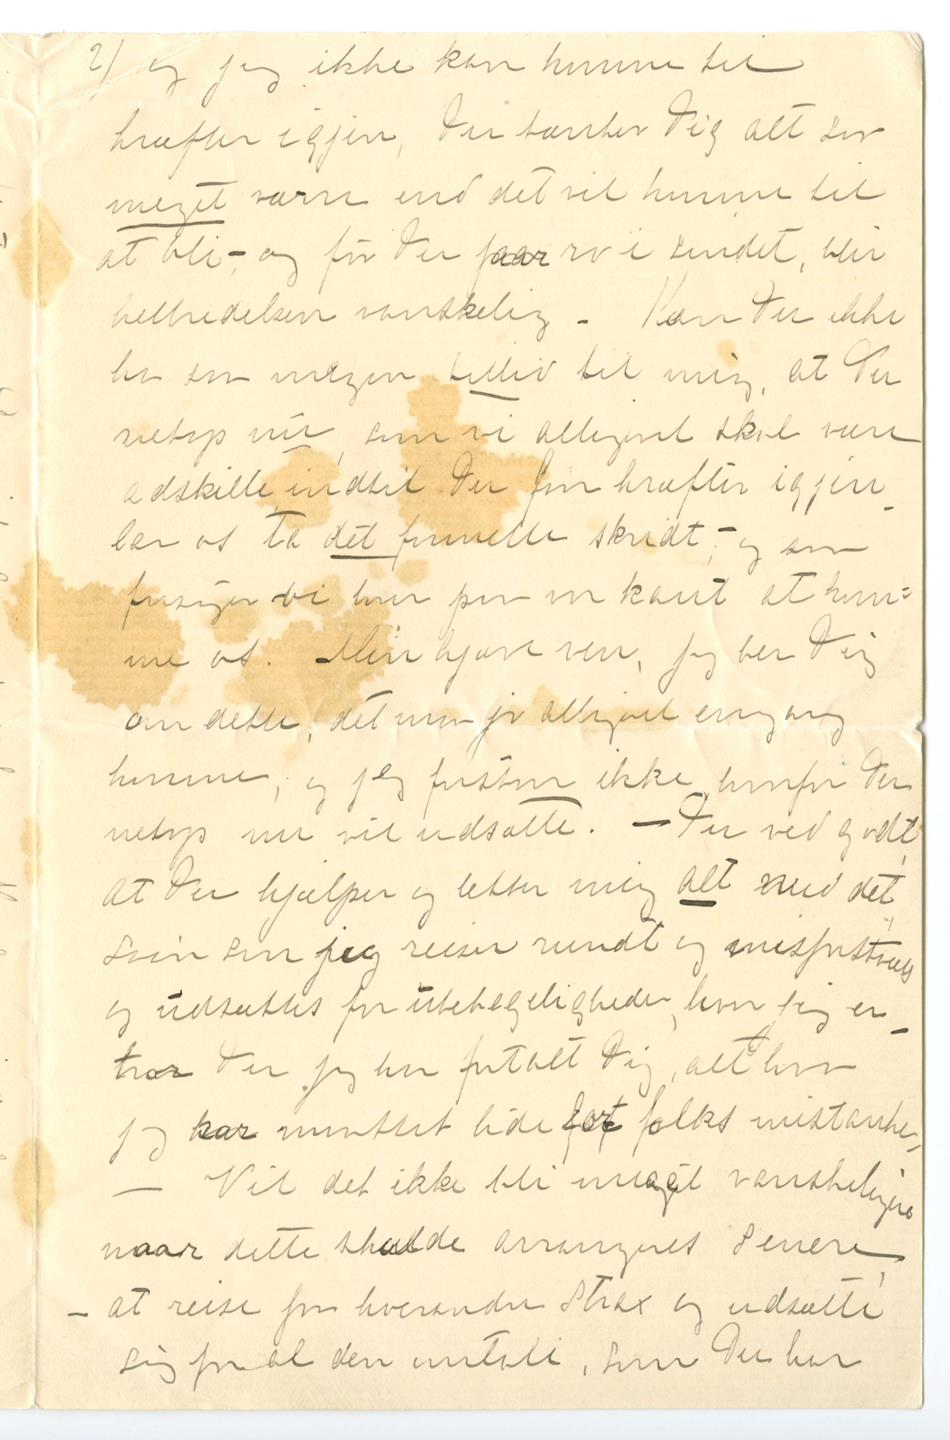 2) og jeg ikke kan komme til
kræfter igjen, Du tænker Dig alt saa
meget værre end det vil komme til
at bli –, og før Du faar ro i sindet, blir
helbredelsen vanskelig – Kan Du ikke
ha saa megen tillid til mig, at Du
netop nu, som vi alligevel skal være
adskilte indtil Du faar kræfter igjen –
lar os ta det formelle skridt, – og saa
forsøger vi hver paa sin kant at kom=
me os. Min kjære ven, jeg ber Dig
om dette, det maa jo alligevel engang
komme, og jeg forstaar ikke, hvorfor Du
netop nu vil udsætte. – Du ved godt,
at Du hjælper og letter mig alt med det,
som jeg reiser rundt og misforstaaes
og udsættes for ubehageligheder, hvor jeg er –
tror Du jeg har fortalt Dig, alt hvad
jeg har maattet lide for folks mistanke,
– Vil det ikke bli meget vanskeligere
naar dette skulde arrangeres senere,
– at reise fra hverandre strax og udsætte
sig for al den omtale, som Du har